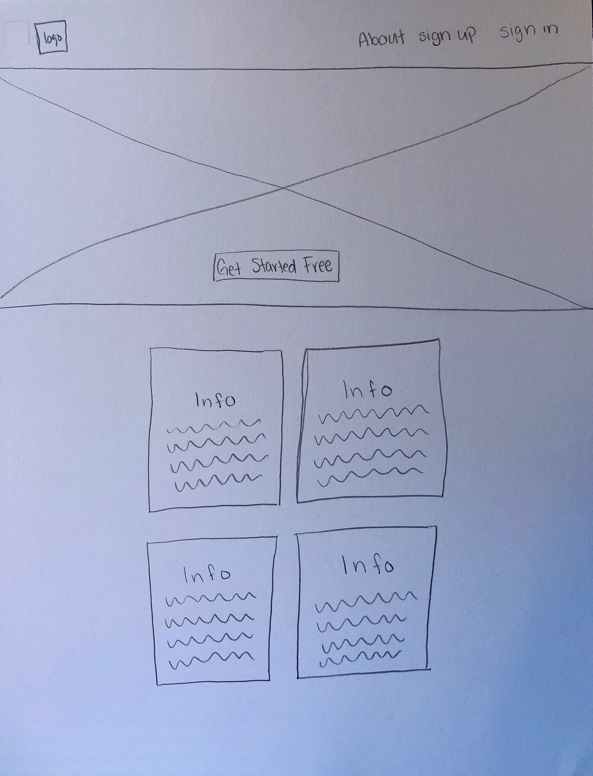 logo About sign up sign in
Get Started Free
Info Info
Info Info